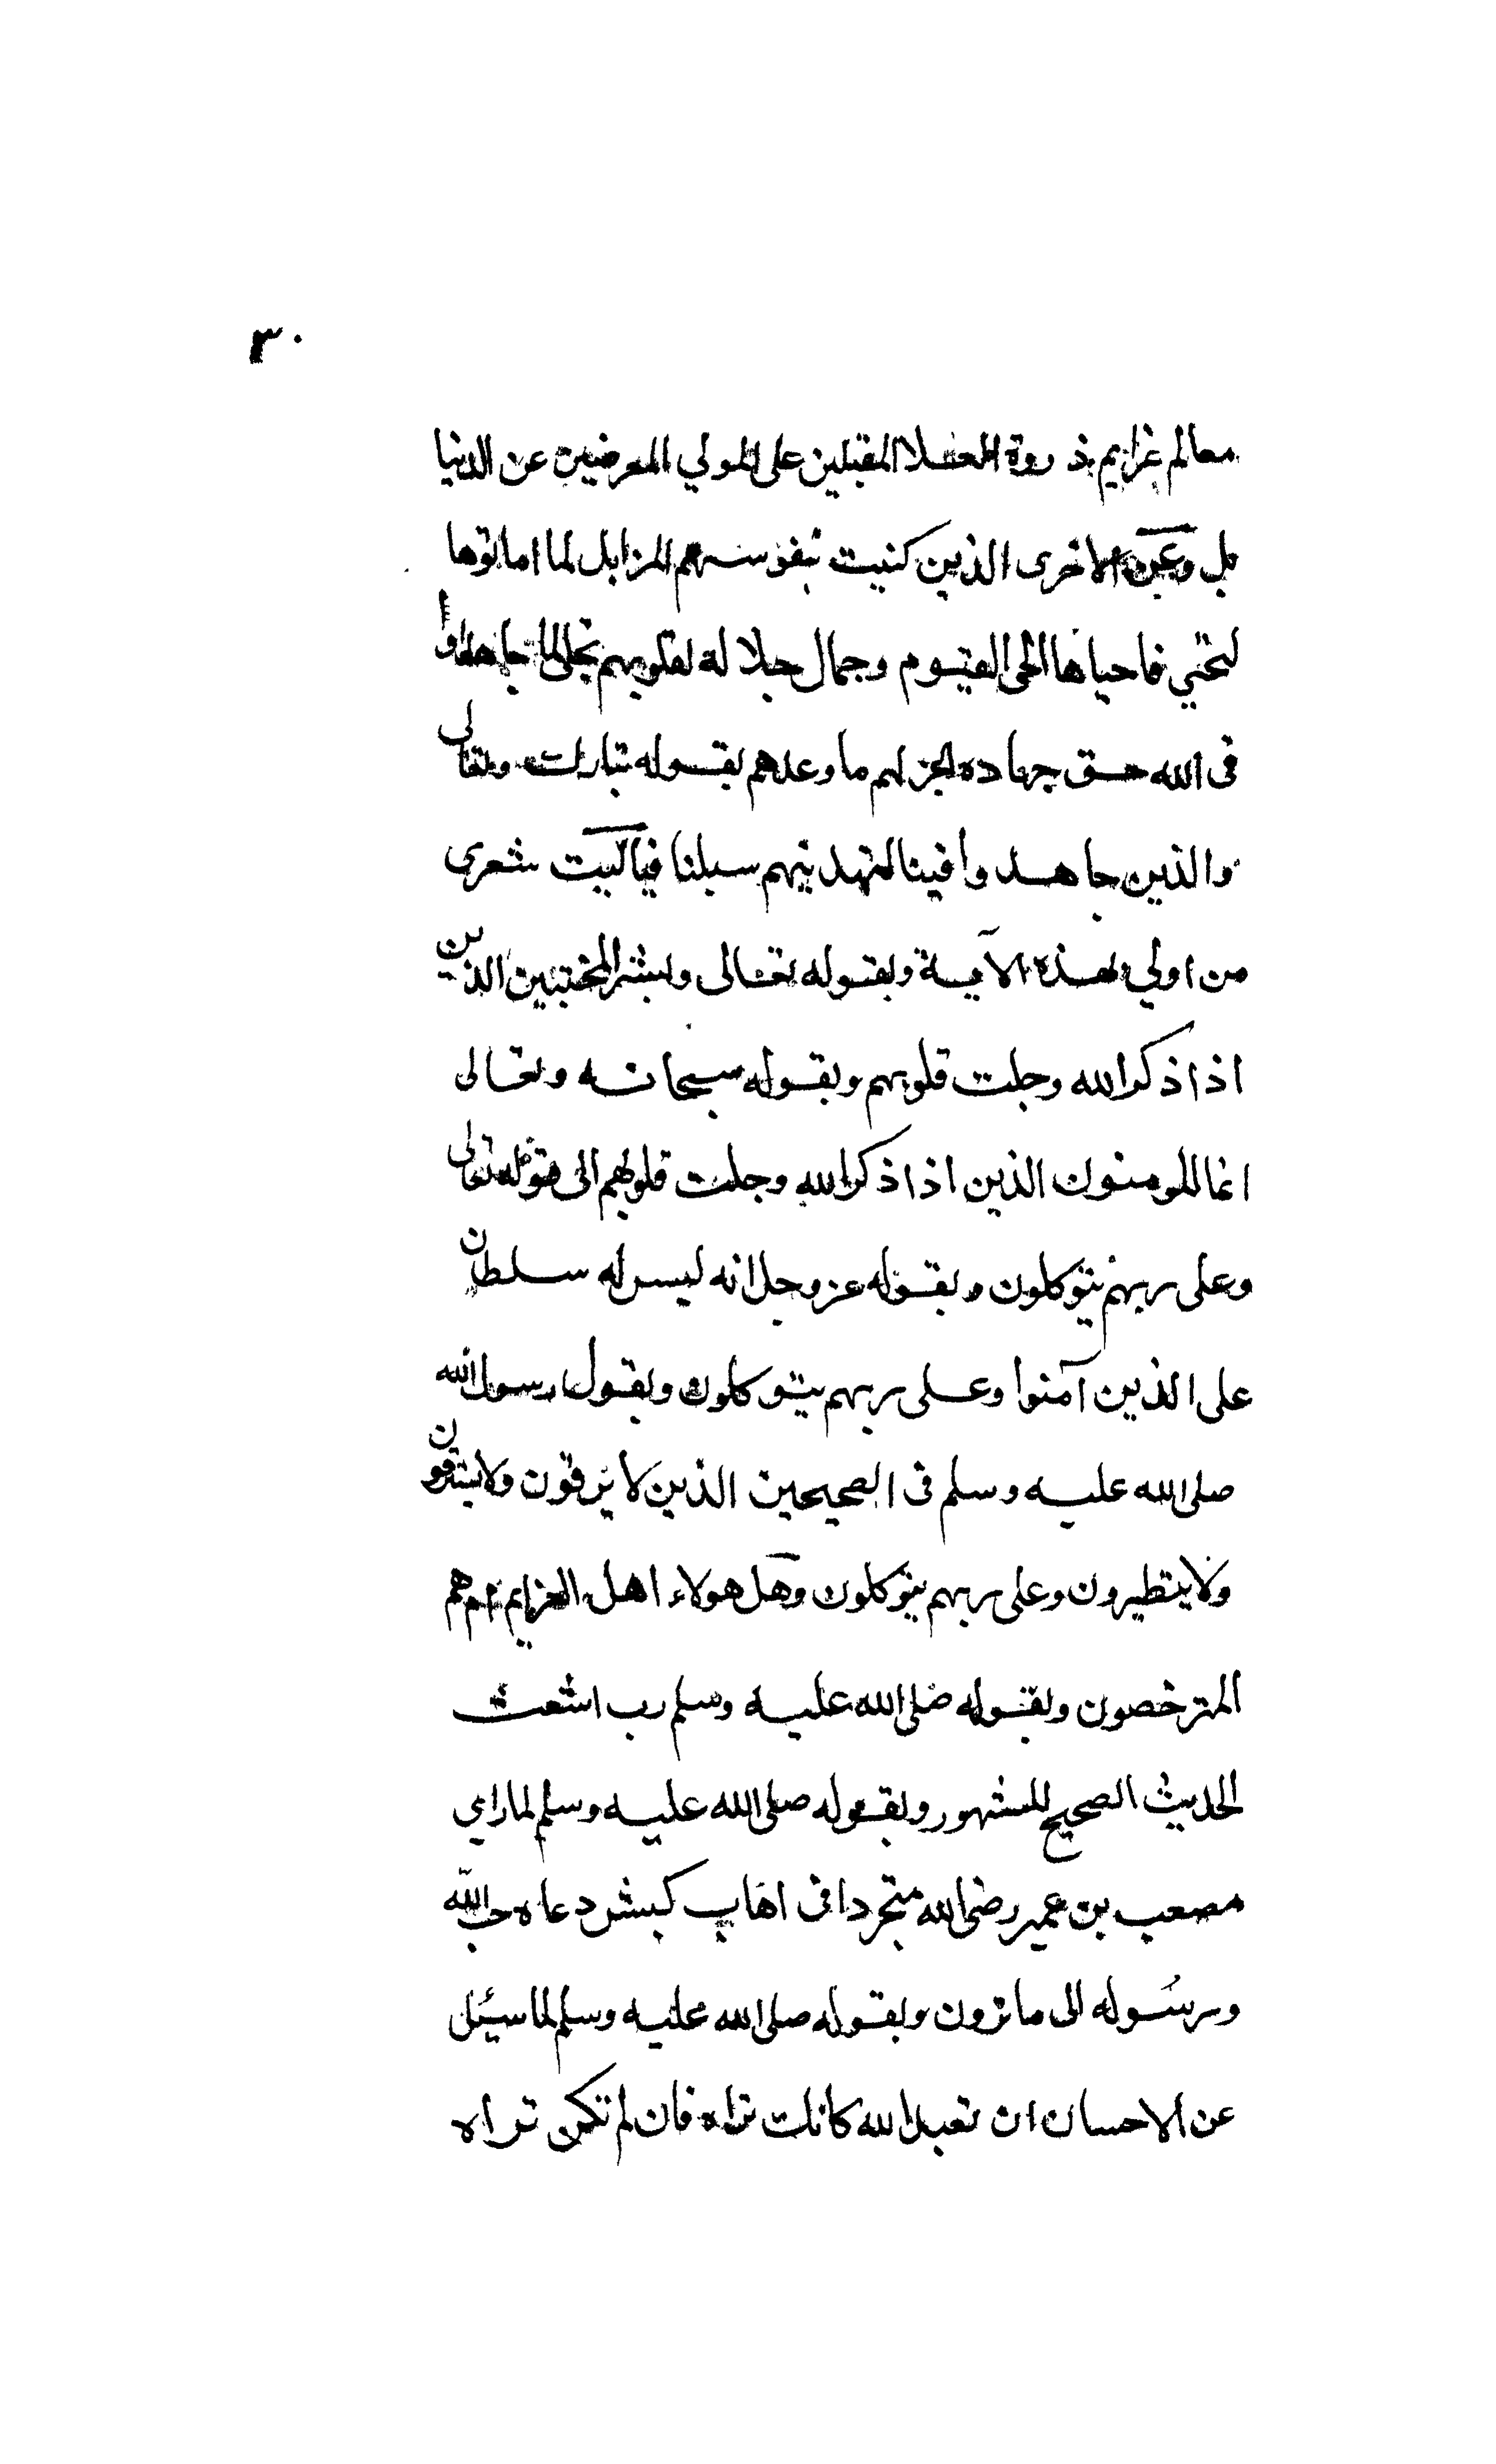 ٣٠
معالم غرايم ذروة العلا المقبلين على المولي المعرضين عن الدنيا
بل وعن الاخرى الذين كنيت بنفوسهم المزابل لما اماتوها
لتحيي فاحياها الحى القيوم وجمال جلاله لقلوبهم تجلى لما جاهدوا
فى الله حق جهاده انجز لهم ما وعدهم بقوله تبارك وتعالى
والذين جاهدوا فينا لنهدينهم سبلنا فياليت شعرى
من اولي بهذه الآية وبقوله تعالى وبشر المخبتين الذين
اذا ذكر الله وجلت قلوبهم وبقوله سبحانه وتعالى
انما المومنون الذين اذا ذكر الله وجلت قلوبهم الى قوله تعالى
وعلى ربهم يتوكلون وبقوله عز وجل انه ليس له سلطان
على الذين آمنوا وعلى ربهم يتوكلون وبقول رسول الله
صلى الله عليه وسلم فى الصحيحين الذين لا يرقون ولا يسترقون
ولا يتطيرون وعلى ربهم يتوكلون وهل هولاء اهل العزايم ام هم
المترخصون وبقوله صلى الله عليه وسلم رب اشعث
الحديث الصحيح المشهور وبقوله صلى الله عليه وسلم لما راي
مصعب بن عمير رضى الله متجردا فى اهاب كبش دعاه حب الله
ورسوله الى ما ترون وبقوله صلى الله عليه وسلم لما سيئل
عن الاحسان ان تعبد الله كانك تراه فان لم تكن تراه